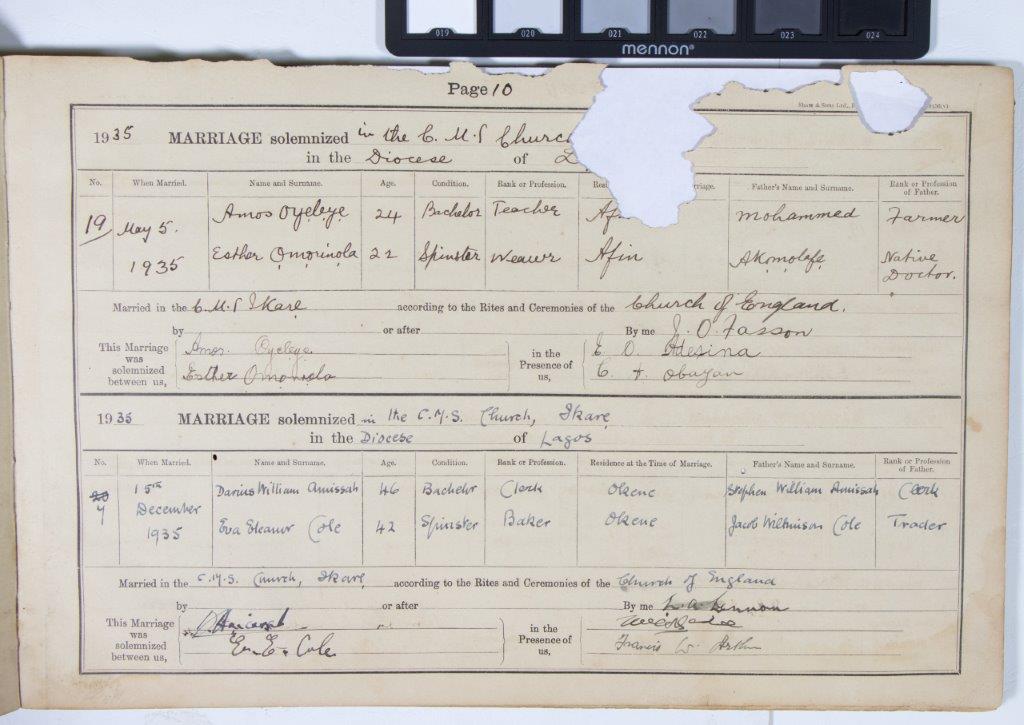 019 020 021 022 023 024
mennon®
Page 10
1935 MARRIAGE solemnized in the C. M. S Church
in the Diocese of
No. When Married. Name and Surname. Age. Condition. Rank or Profession. Father's Name and Surname. Rank or Profession of Father.
19 May 5. Amos Oyeleye 24 Bachelor Teacher Mohammed Farmer
1935 Esther Ọmọrinọla 22 Spinster Weaver Afin Akọmọlafẹ Native Doctor.
Married in the C.M.S Ikare according to the Rites and Ceremonies of the Church of England.
by or after By me J. O. Fasson
This Marriage was solemnized between us, Amos. Oyeleye in the Presence of us, E. O. Adesina
Esther Omorinola obayan
1935 MARRIAGE solemnized in the C.M.S. Church, Ikare
in the Diocese of Lagos
No. When Married. Name and Surname. Age. Condition. Rank or Profession. Residence at the Time of Marriage. Father's Name and Surname. Rank or Profession of Father.
15th December 1935 Darius William Amissah 46 Bachelor Clerk Okene Stephen William Amissah Clerk
Eva Eleanor Cole 42 Spinster Baker Okene Jacob Wilkinson Cole Trader
Married in the C.M.S. Church, Ikare according to the Rites and Ceremonies of the Church of England
by or after By me L. A. Lennon
This Marriage was solemnized between us, in the Presence of us,
E. E. Cole Francis W.